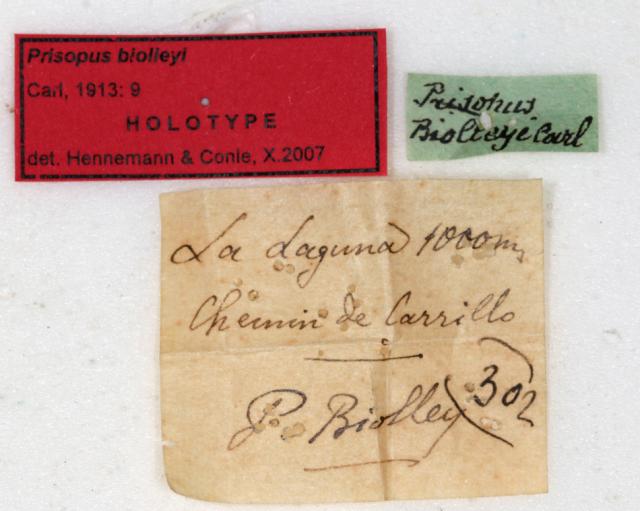 Prisopus biolleyi
Carl, 1913: 9
HOLOTYPE
det. Hennemann & Conle, X.2007
Prisopus
Biolleyi Carl
La Laguna 1000m,
Chemin de Carrillo
P. Biolley
302